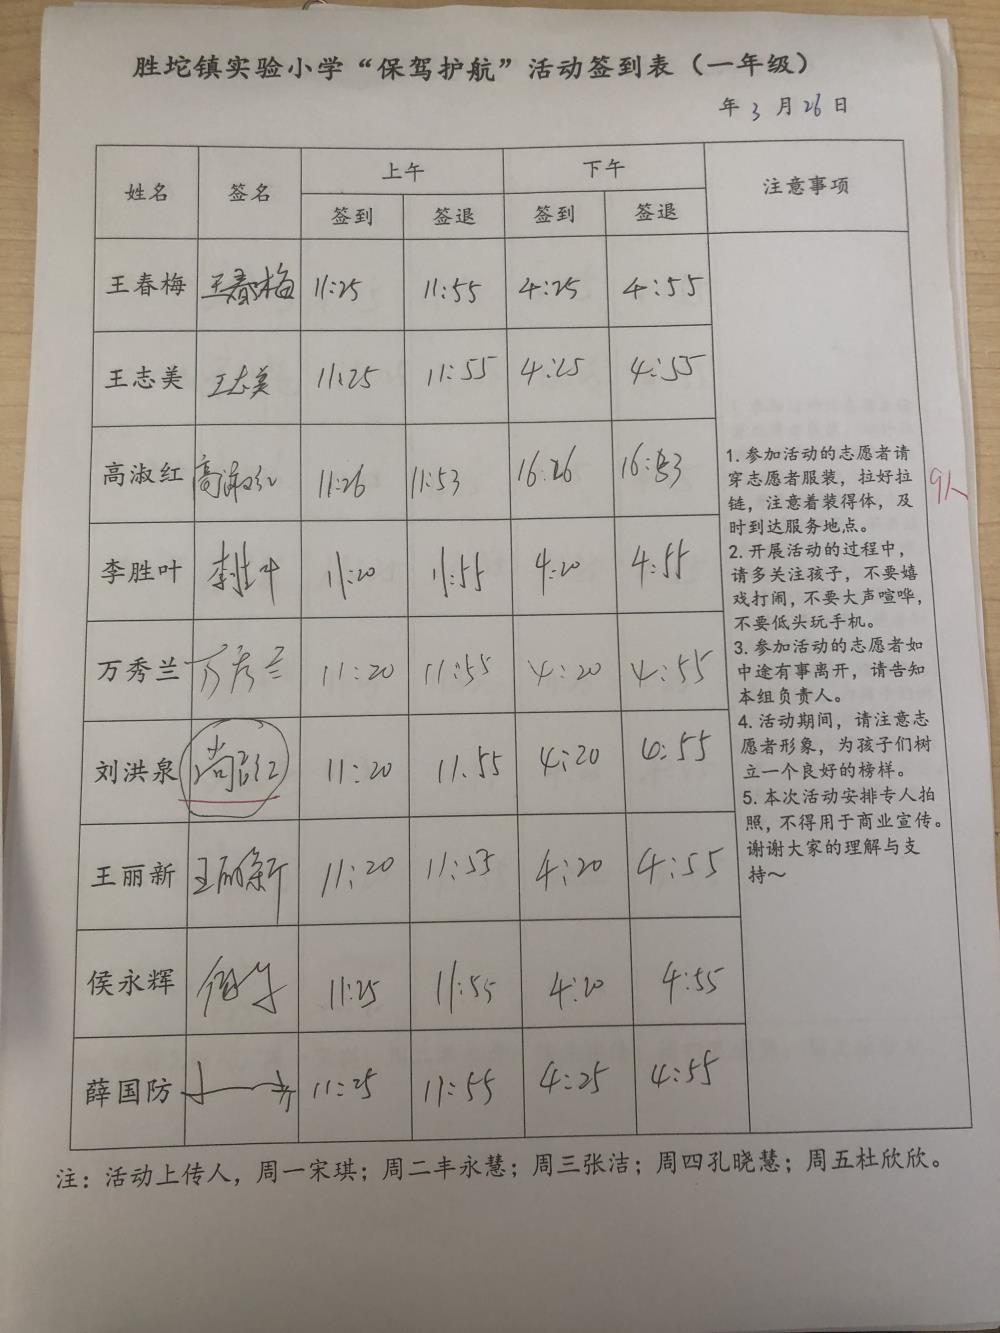 胜坨镇实验小学“保驾护航”活动签到表（一年级）
年 3 月 26 日
姓名 签名 上午 下午 注意事项
签到 签退 签到 签退
王春梅 王春梅 11:25 11:55 4:25 4:55
王志美 王志美 11:25 11:55 4:25 4:55
高淑红 高淑红 11:26 11:53 16:26 16:53
李胜叶 李胜叶 11:20 11:55 4:20 4:55
万秀兰 万秀兰 11:20 11:55 4:20 4:55
刘洪泉 11:20 11.55 4:20 4:55
王丽新 王丽新 11:20 11:55 4:20 4:55
侯永辉 11:25 11:55 4:20 4:55
薛国防 11:25 11:55 4:25 4:55
1. 参加活动的志愿者请
穿志愿者服装，拉好拉
链，注意着装得体，及
时到达服务地点。
2. 开展活动的过程中，
请多关注孩子，不要嬉
戏打闹，不要大声喧哗，
不要低头玩手机。
3. 参加活动的志愿者如
中途有事离开，请告知
本组负责人。
4. 活动期间，请注意志
愿者形象，为孩子们树
立一个良好的榜样。
5. 本次活动安排专人拍
照，不得用于商业宣传。
谢谢大家的理解与支
持～
9人
注：活动上传人，周一宋琪；周二丰永慧；周三张洁；周四孔晓慧；周五杜欣欣。